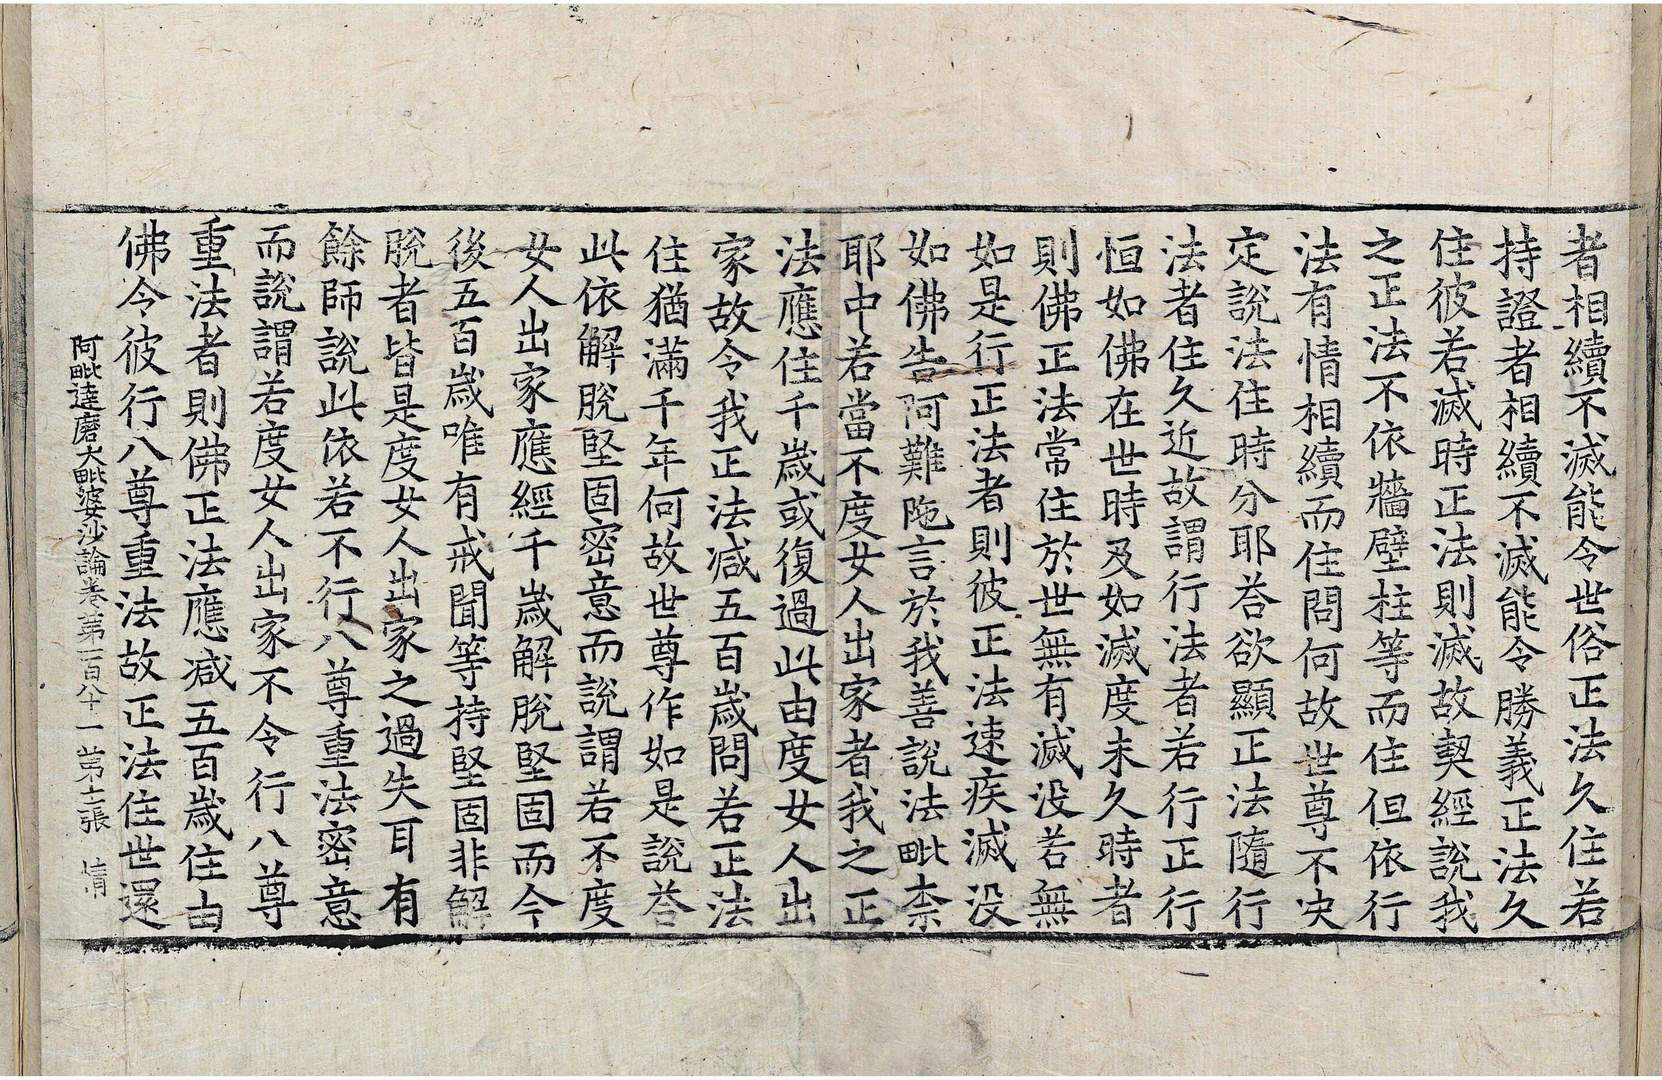 者相續不滅能令世俗正法久住若
持證者相續不滅能令勝義正法久
住彼若滅時正法則滅故契經說我
之正法不依牆壁柱等而住但依行
法有情相續而住問何故世尊不决
定說法住時分耶荅欲顯正法隨行
法者住久近故謂行法者若行正行
恒如佛在世時及如滅度未久時者
則佛正法常住於世無有滅没若無
如是行正法者則彼正法速疾滅没
如佛告阿難陁言於我善說法毗柰
耶中若當不度女人出家者我之正
法應住千歲或復過此由度女人出
家故令我正法减五百歲問若正法
住猶滿千年何故世尊作如是說荅
此依解脫堅固密意而說謂若不度
女人出家應經千歲解脫堅固而今
後五百歲唯有戒聞等持堅固非解
脫者皆是度女人出家之過失耳有
餘師說此依若不行八尊重法密意
而說謂若度女人出家不令行八尊
重法者則佛正法應减五百歲住由
佛令彼行八尊重法故正法住世還
阿毗達磨大毗婆沙論卷第一百八十一 第十二張 情